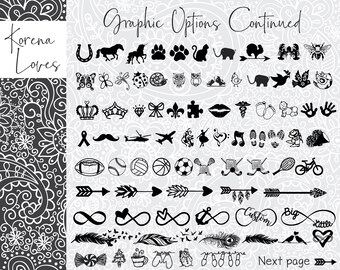 Korena
Loves
Graphic Options Continued
Custom
Big
love
Next page